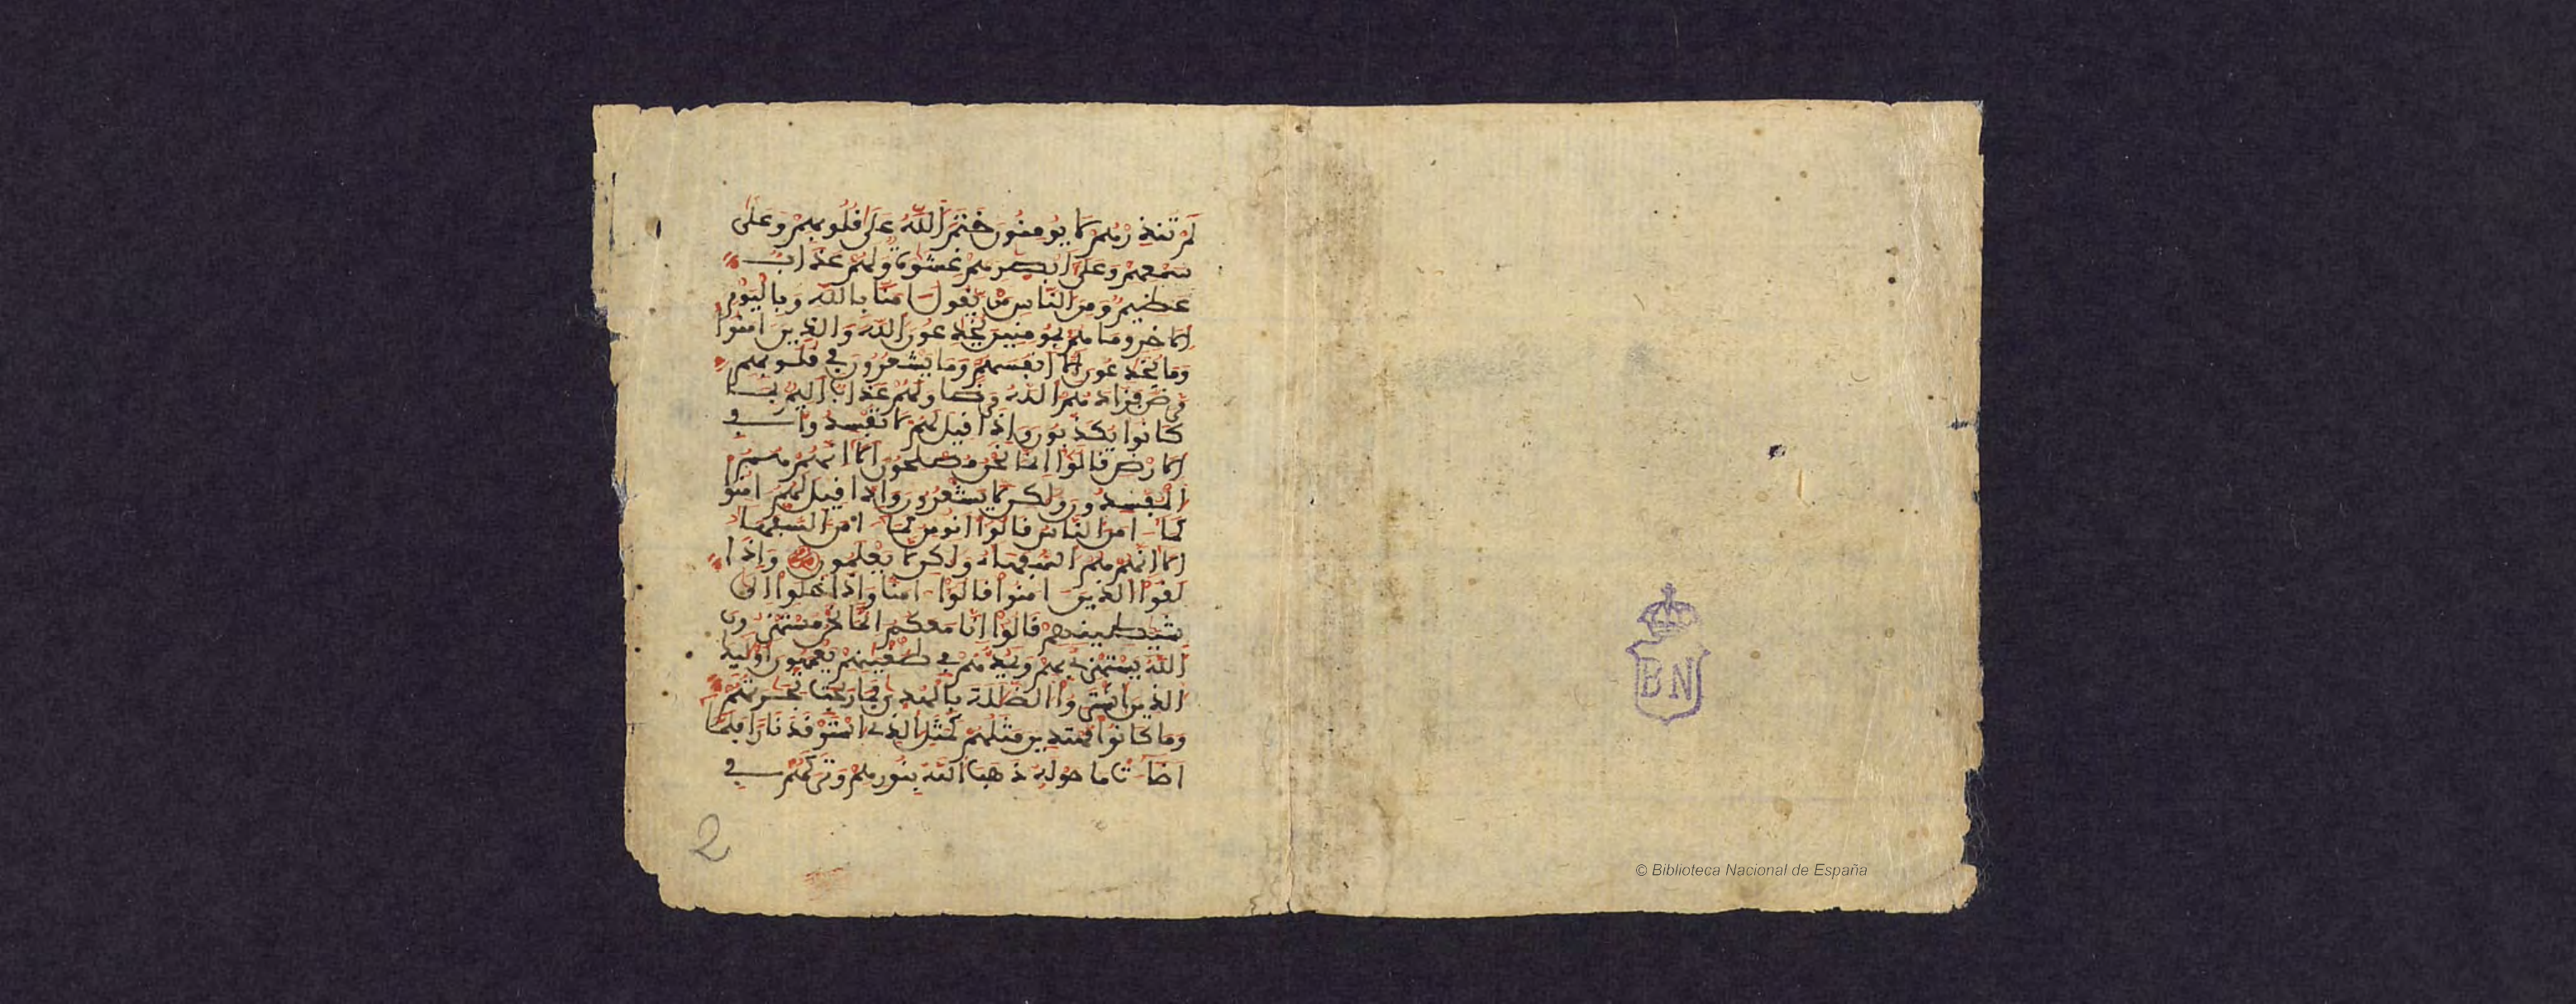 لم تنذرهم لا يومنون ختم الله على قلوبهم وعلى
سمعهم وعلى ابصرهم غشوة ولهم عذاب
عظيم ومن الناس من يقول امنا بالله وباليوم
الاخر وما هم بمومنين يخدعون الله والذين امنوا
وما يخدعون الا انفسهم وما يشعرون في قلوبهم
مرض فزادهم الله مرضا ولهم عذاب اليم بما
كانوا يكذبون واذا قيل لهم لا تفسدوا في
الارض قالوا انما نحن مصلحون الا انهم هم
المفسدون ولكن لا يشعرون واذا قيل لهم امنوا
كما امن الناس قالوا انومن كما امن السفها
الا انهم هم السفها ولكن لا يعلمون واذا
لقوا الذين امنوا قالوا امنا واذا خلوا الى
شيطينهم قالوا انا معكم انما نحن مستهزءون
الله يستهزئ بهم ويمدهم في طغينهم يعمهون اوليك
الذين اشتروا الضللة بالهدى فما ربحت تجرتهم
وما كانوا مهتدين مثلهم كمثل الذي استوقد نارا فلما
اضات ما حوله ذهب الله بنورهم وتركهم في
2
BN
© Biblioteca Nacional de España